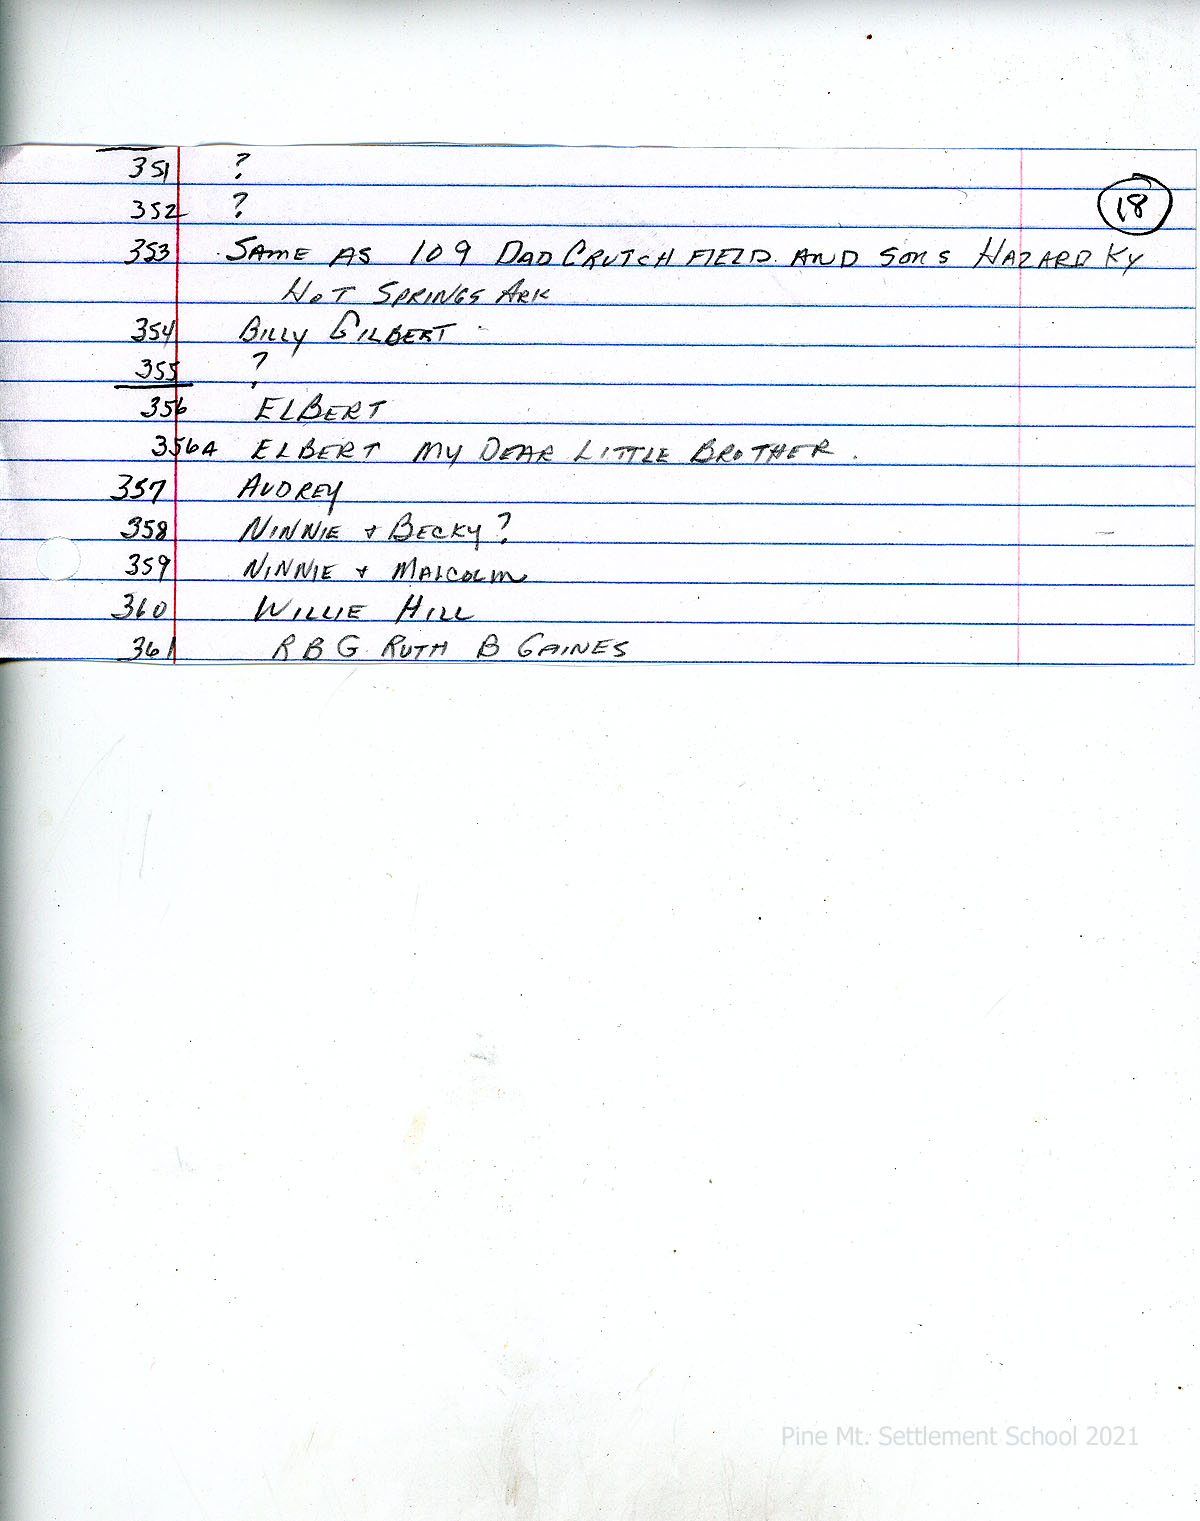 351 ?
352 ?
18
353 SAME AS 109 DAD CRUTCHFIELD. AND SONS HAZARD KY
HOT SPRINGS ARK
354 BILLY GILBERT
355 ?
356 ELBERT
356A ELBERT MY DEAR LITTLE BROTHER.
357 AUDREY
358 NINNIE + BECKY?
359 NINNIE + MALCOLM
360 WILLIE HILL
361 R B G RUTH B GAINES
Pine Mt. Settlement School 2021